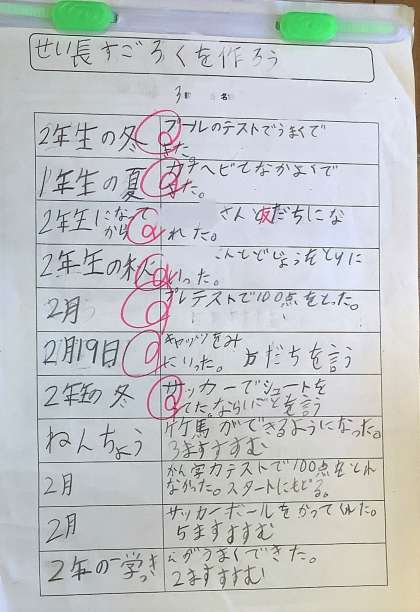 せい長すごろくを作ろう
3
名
2年生の冬
プールのテストでうまくで
きた。
1年生の夏
ヘビとなかよくで
きた。
2年生になって
から
さんと友だちにな
れた。
2年生の秋
どじょうをとりに
いった。
2月
プレテストで100点をとった。
2月19日
キャッツをみ
にいった。 友だちを言う
2年生の冬
サッカーでシュートを
ならいごとを言う
ねんちょう
竹馬ができるようになった。
3ますすすむ
2月
かん字力テストで100点をとれ
なかった。スタートにもどる。
2月
サッカーボールをかってくれた。
5ますすすむ
2年の一学っき
がうまくできた。
2ますすすむ